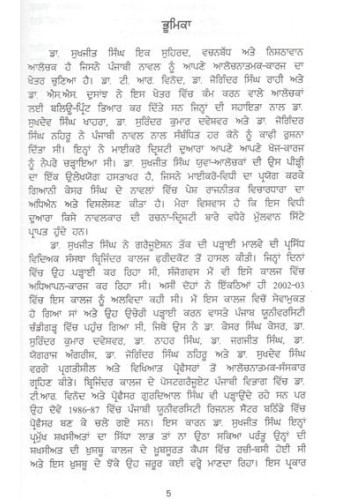 ਭੂਮਿਕਾ
ਡਾ. ਸੁਖਜੀਤ ਸਿੰਘ ਇਕ ਸੁਹਿਰਦ, ਵਚਨਬੱਧ ਅਤੇ ਨਿਸ਼ਠਾਵਾਨ
ਆਲੋਚਕ ਹੈ ਜਿਸਨੇ ਪੰਜਾਬੀ ਨਾਵਲ ਨੂੰ ਆਪਣੇ ਆਲੋਚਨਾਤਮਕ-ਕਾਰਜ ਦਾ
ਖੇਤਰ ਚੁਣਿਆ ਹੈ। ਡਾ. ਟੀ. ਆਰ. ਵਿਨੋਦ, ਡਾ. ਜੋਗਿੰਦਰ ਸਿੰਘ ਰਾਹੀ ਅਤੇ
ਡਾ. ਐਸ.ਐਸ. ਦੁਸਾਂਝ ਨੇ ਇਸ ਖੇਤਰ ਵਿੱਚ ਕੰਮ ਕਰਨ ਵਾਲੇ ਆਲੋਚਕਾਂ
ਲਈ ਬਲਿਊ-ਪ੍ਰਿੰਟ ਤਿਆਰ ਕਰ ਦਿੱਤੇ ਸਨ ਜਿਨ੍ਹਾਂ ਦੀ ਸਹਾਇਤਾ ਨਾਲ ਡਾ.
ਸੁਖਦੇਵ ਸਿੰਘ ਖਾਹਰਾ, ਡਾ. ਸੁਰਿੰਦਰ ਕੁਮਾਰ ਦਵੇਸ਼ਵਰ ਅਤੇ ਡਾ. ਜੋਗਿੰਦਰ
ਸਿੰਘ ਨਹਿਰੂ ਨੇ ਪੰਜਾਬੀ ਨਾਵਲ ਨਾਲ ਸੰਬੰਧਿਤ ਹਰ ਕੋਨੇ ਨੂੰ ਕਾਫੀ ਰੁਸ਼ਨਾ
ਦਿੱਤਾ ਸੀ। ਇਨ੍ਹਾਂ ਨੇ ਮਾਈਕਰੋ ਦ੍ਰਿਸ਼ਟੀ ਦੁਆਰਾ ਆਪਣੇ ਆਪਣੇ ਖੋਜ-ਕਾਰਜ
ਨੂੰ ਨੇਪਰੇ ਚੜ੍ਹਾਇਆ ਸੀ। ਡਾ. ਸੁਖਜੀਤ ਸਿੰਘ ਯੁਵਾ-ਆਲੋਚਕਾਂ ਦੀ ਉਸ ਪੀੜ੍ਹੀ
ਦਾ ਇਕ ਉਲੇਖਯੋਗ ਹਸਤਾਖਰ ਹੈ, ਜਿਸਨੇ ਮਾਈਕਰੋ-ਵਿਧੀ ਦਾ ਪ੍ਰਯੋਗ ਕਰਕੇ
ਗਿਆਨੀ ਕੇਸਰ ਸਿੰਘ ਦੇ ਨਾਵਲਾਂ ਵਿੱਚ ਪੇਸ਼ ਰਾਜਨੀਤਕ ਵਿਚਾਰਧਾਰਾ ਦਾ
ਅਧਿਐਨ ਅਤੇ ਵਿਸ਼ਲੇਸ਼ਣ ਕੀਤਾ ਹੈ। ਮੇਰਾ ਵਿਸ਼ਵਾਸ ਹੈ ਕਿ ਇਸ ਵਿਧੀ
ਦੁਆਰਾ ਕਿਸੇ ਨਾਵਲਕਾਰ ਦੀ ਰਚਨਾ-ਦ੍ਰਿਸ਼ਟੀ ਬਾਰੇ ਵਧੇਰੇ ਮੁੱਲਵਾਨ ਸਿੱਟੇ
ਪ੍ਰਾਪਤ ਹੁੰਦੇ ਹਨ।
ਡਾ. ਸੁਖਜੀਤ ਸਿੰਘ ਨੇ ਗਰੈਜੂਏਸ਼ਨ ਤੱਕ ਦੀ ਪੜ੍ਹਾਈ ਮਾਲਵੇ ਦੀ ਪ੍ਰਸਿੱਧ
ਵਿਦਿਅਕ ਸੰਸਥਾ ਬ੍ਰਿਜਿੰਦਰ ਕਾਲਜ ਫਰੀਦਕੋਟ ਤੋਂ ਹਾਸਲ ਕੀਤੀ। ਜਿਨ੍ਹਾਂ ਦਿਨਾਂ
ਵਿੱਚ ਉਹ ਪੜ੍ਹਾਈ ਕਰ ਰਿਹਾ ਸੀ, ਸੰਜੋਗਵਸ ਮੈਂ ਵੀ ਇਸੇ ਕਾਲਜ ਵਿੱਚ
ਅਧਿਆਪਨ-ਕਾਰਜ ਕਰ ਰਿਹਾ ਸੀ। ਅਸੀਂ ਦੋਹਾਂ ਨੇ ਇੱਕਠਿਆਂ ਹੀ 2002-03
ਵਿੱਚ ਇਸ ਕਾਲਜ ਨੂੰ ਅਲਵਿਦਾ ਕਹੀ ਸੀ। ਮੈਂ ਇਸ ਕਾਲਜ ਵਿਚੋਂ ਸੇਵਾਮੁਕਤ
ਹੋ ਗਿਆ ਸਾਂ ਅਤੇ ਉਹ ਉਚੇਰੀ ਪੜ੍ਹਾਈ ਕਰਨ ਵਾਸਤੇ ਪੰਜਾਬ ਯੂਨੀਵਰਸਿਟੀ
ਚੰਡੀਗੜ੍ਹ ਵਿੱਚ ਪਹੁੰਚ ਗਿਆ ਸੀ, ਜਿਥੇ ਉਸ ਨੇ ਡਾ. ਕੇਸਰ ਸਿੰਘ ਕੇਸਰ, ਡਾ.
ਸੁਰਿੰਦਰ ਕੁਮਾਰ ਦਵੇਸ਼ਵਰ, ਡਾ. ਨਾਹਰ ਸਿੰਘ, ਡਾ. ਜਗਜੀਤ ਸਿੰਘ, ਡਾ.
ਯੋਗਰਾਜ ਅੰਗਰੀਸ਼, ਡਾ. ਜੋਗਿੰਦਰ ਸਿੰਘ ਨਹਿਰੂ ਅਤੇ ਡਾ. ਸੁਖਦੇਵ ਸਿੰਘ
ਵਰਗੇ ਪ੍ਰਗਤੀਸ਼ੀਲ ਅਤੇ ਵਿਖਿਆਤ ਪ੍ਰੋਫੈਸਰਾਂ ਤੋਂ ਆਲੋਚਨਾਤਮਕ-ਸੰਸਕਾਰ
ਗ੍ਰਹਿਣ ਕੀਤੇ। ਬ੍ਰਿਜਿੰਦਰ ਕਾਲਜ ਦੇ ਪੋਸਟਗਰੈਜੂਏਟ ਪੰਜਾਬੀ ਵਿਭਾਗ ਵਿੱਚ ਡਾ.
ਟੀ.ਆਰ. ਵਿਨੋਦ ਅਤੇ ਪ੍ਰੋਫੈਸਰ ਗੁਰਦਿਆਲ ਸਿੰਘ ਵੀ ਪੜ੍ਹਾਉਂਦੇ ਰਹੇ ਸਨ ਪਰ
ਉਹ ਦੋਵੇਂ 1986-87 ਵਿੱਚ ਪੰਜਾਬੀ ਯੂਨੀਵਰਸਿਟੀ ਰਿਜਨਲ ਸੈਂਟਰ ਬਠਿੰਡੇ ਵਿੱਚ
ਪ੍ਰੋਫੈਸਰ ਬਣ ਕੇ ਚਲੇ ਗਏ ਸਨ। ਇਸ ਕਾਰਨ ਡਾ. ਸੁਖਜੀਤ ਸਿੰਘ ਇਨ੍ਹਾਂ
ਪ੍ਰਮੁੱਖ ਸ਼ਖਸੀਅਤਾਂ ਦਾ ਸਿੱਧਾ ਲਾਭ ਤਾਂ ਨਾ ਉਠਾ ਸਕਿਆ ਪਰੰਤੂ ਉਨ੍ਹਾਂ ਦੀ
ਸ਼ਖਸੀਅਤ ਦੀ ਖੁਸ਼ਬੂ ਕਾਲਜ ਦੇ ਖੂਬਸੂਰਤ ਕੈਂਪਸ ਵਿੱਚ ਰਚੀ-ਬਸੀ ਹੋਈ ਸੀ
ਅਤੇ ਇਸ ਖੁਸ਼ਬੂ ਦੇ ਝੋਂਕੇ ਉਹ ਜ਼ਰੂਰ ਕਈ ਵਰ੍ਹੇ ਮਾਣਦਾ ਰਿਹਾ। ਇਸ ਪ੍ਰਕਾਰ
5